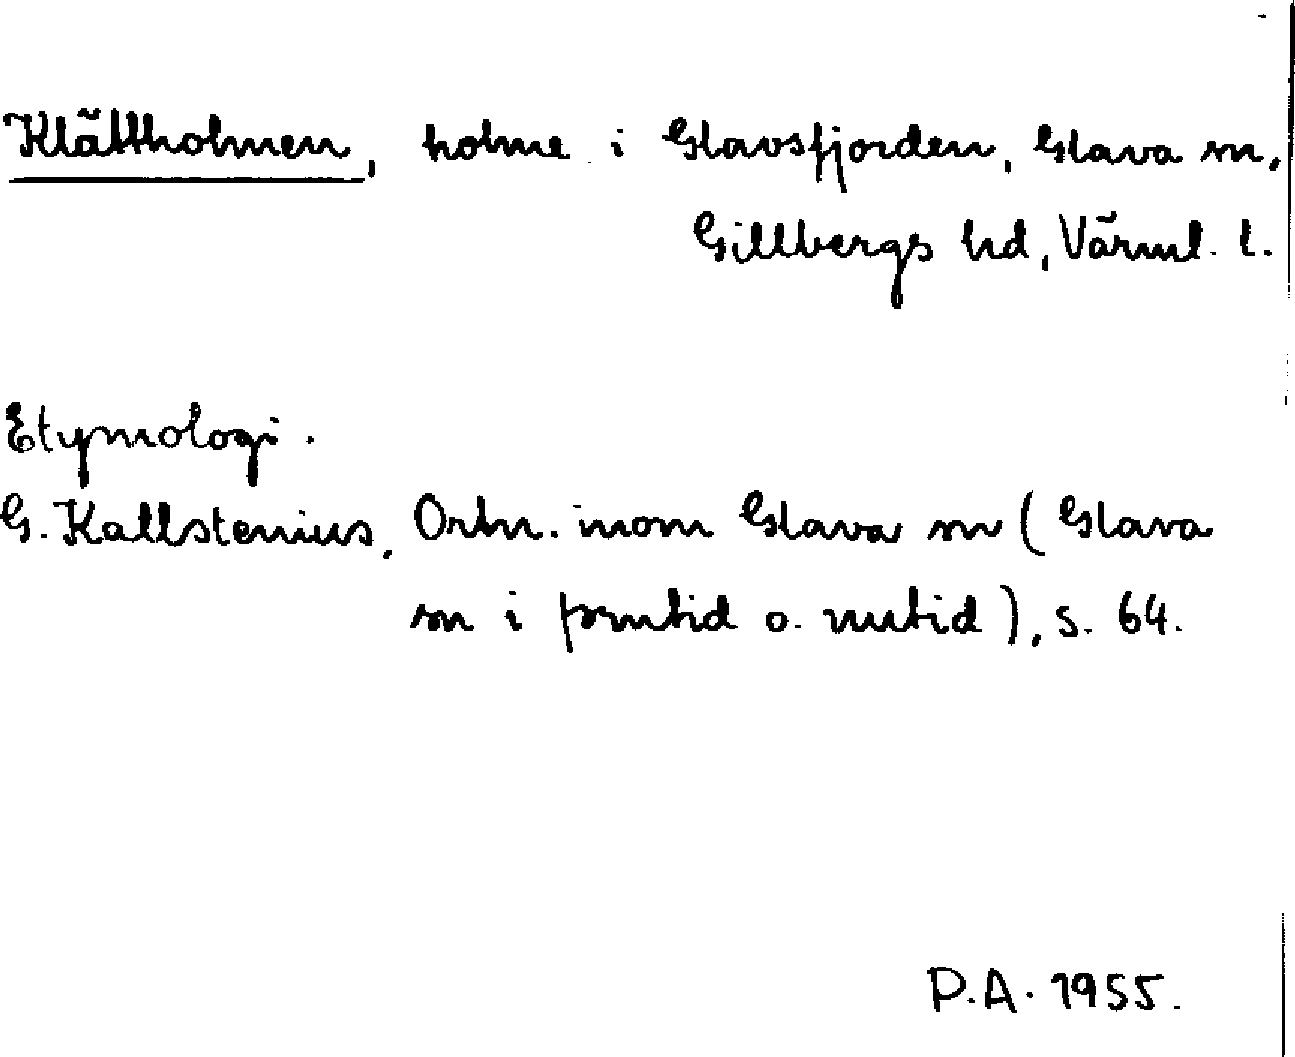 Klättholmen, holme i Glavsfjorden, Glava sn,
Gillbergs hd, Värml. l.
Etymologi.
G. Kallstenius, Ortn. inom Glava sn (Glava
sn i forntid o. nutid), s. 64.
P.A. 1955.